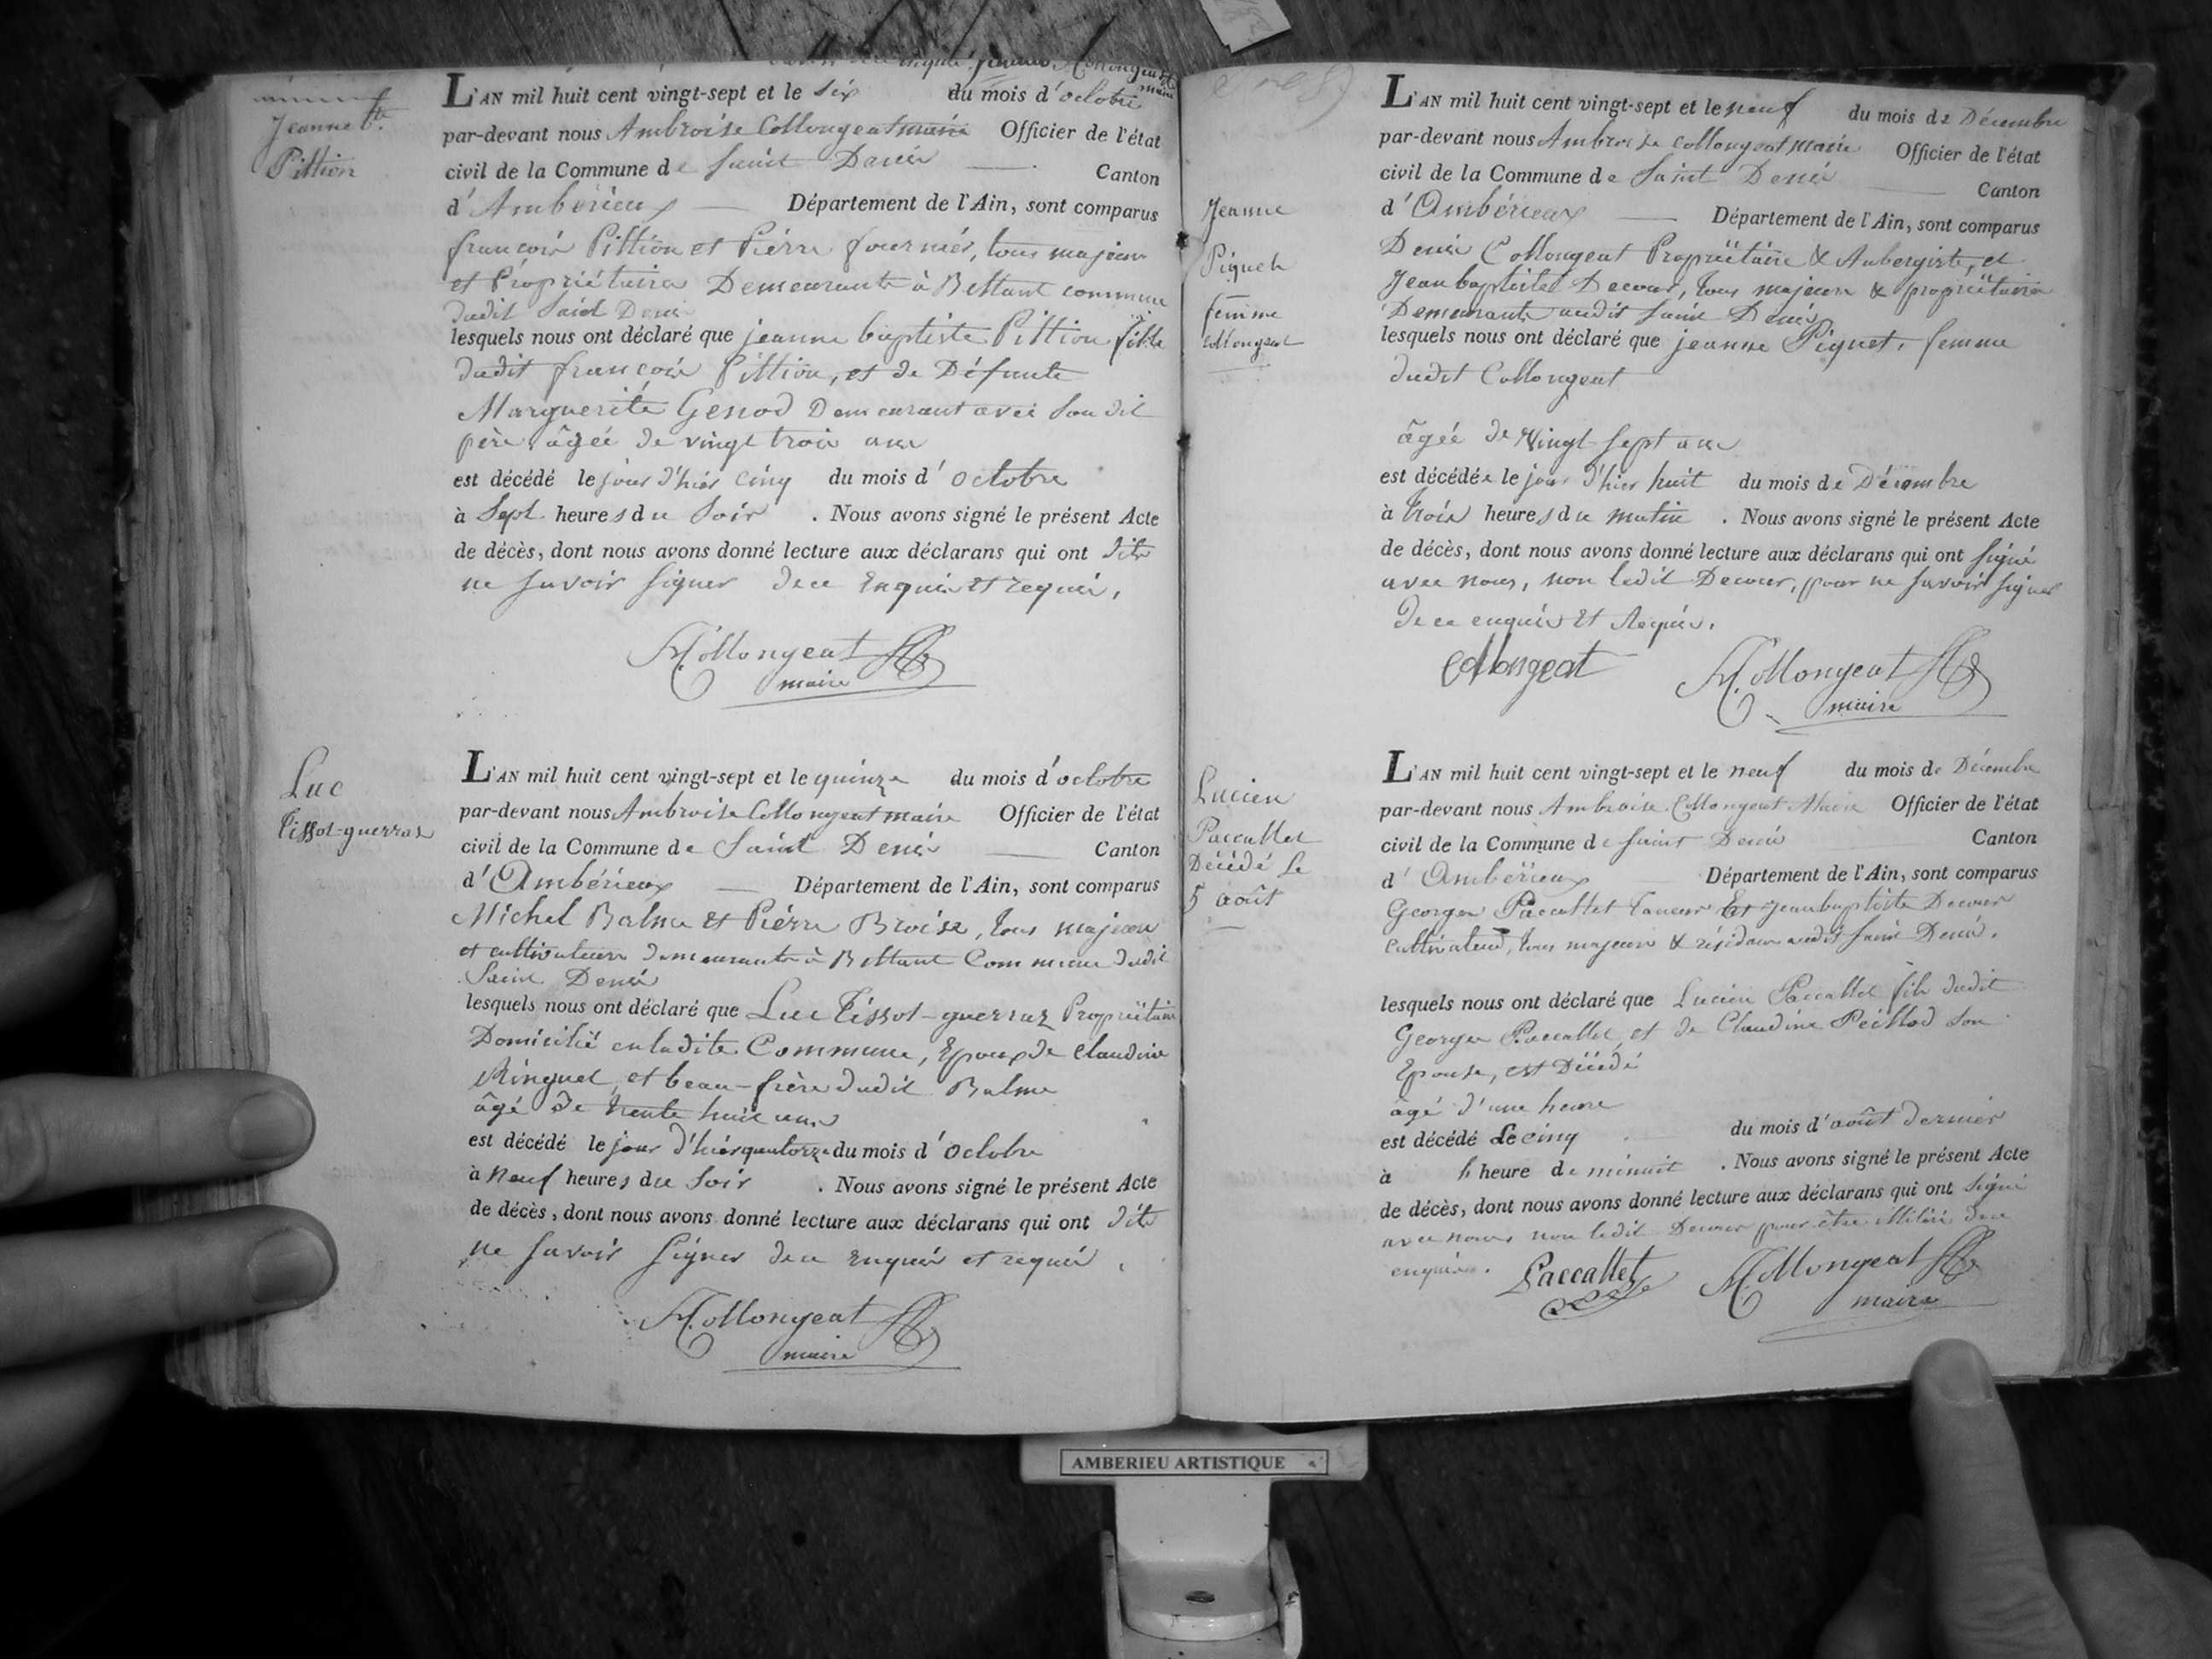 Jeanne Bte
Pittion
L'AN mil huit cent vingt-sept et le six du mois d'octobre
par-devant nous Ambroise Collongeat maire Officier de l'état
civil de la Commune de Saint Denis Canton
d'Ambérieux Département de l'Ain, sont comparus
françois Pittion et Pierre fournier, tous majeurs
et Propriétaires Demeurants à Bettant commune
dudit Saint Denis
lesquels nous ont déclaré que jeanne baptiste Pittion fille
dudit françois Pittion, et de Défunte
Marguerite Genod Demeurant avec Son dit
père, âgée de vingt trois ans
est décédé le jour d'hier cinq du mois d'octobre
à Sept heures du Soir . Nous avons signé le présent Acte
de décès, dont nous avons donné lecture aux déclarans qui ont dits
ne Savoir Signer de ce Enquis et requis.
A. Collongeat
maire
Luc
Tissot-guerraz
L'AN mil huit cent vingt-sept et le quinze du mois d'octobre
par-devant nous Ambroise Collongeat maire Officier de l'état
civil de la Commune de Saint Denis Canton
d'Ambérieux Département de l'Ain, sont comparus
Michel Balme et Pierre Broise, tous majeurs
et cultivateurs demeurants à Bettant Commune dudit
Saint Denis
lesquels nous ont déclaré que Luc Tissot-guerraz Propriétaire
Domicilié en ladite Commune, Epoux de Claudine
Ringuet, et beau-frère dudit Balme
âgé de trente huit ans
est décédé le jour d'hier quatorze du mois d'octobre
à Neuf heures du Soir . Nous avons signé le présent Acte
de décès, dont nous avons donné lecture aux déclarans qui ont dits
ne Savoir Signer de ce enquis et requis.
A. Collongeat
maire
Jeanne
Piquet
femme
Collongeat
L'AN mil huit cent vingt-sept et le neuf du mois de Décembre
par-devant nous Ambroise Collongeat maire Officier de l'état
civil de la Commune de Saint Denis Canton
d'Ambérieux Département de l'Ain, sont comparus
Denis Collongeat Propriétaire & Aubergiste, et
Jean baptiste Decour, tous majeurs & propriétaires
Demeurants audit Saint Denis
lesquels nous ont déclaré que jeanne Piquet, femme
dudit Collongeat
âgée de Vingt Sept ans
est décédée le jour d'hier huit du mois de Décembre
à trois heures du matin . Nous avons signé le présent Acte
de décès, dont nous avons donné lecture aux déclarans qui ont signé
avec nous, non ledit Decour, pour ne Savoir Signer
de ce enquis et Requis.
Collongeat A. Collongeat
maire
Lucien
Paccallet
Décédé Le
5 août
L'AN mil huit cent vingt-sept et le neuf du mois de Décembre
par-devant nous Ambroise Collongeat Maire Officier de l'état
civil de la Commune de Saint Denis Canton
d'Ambérieux Département de l'Ain, sont comparus
Georges Paccallet Taneur Et jean baptiste Decour
cultivateur, tous majeurs & résidans audit Saint Denis.
lesquels nous ont déclaré que Lucien Paccallet fils dudit
Georges Paccallet et de Claudine Peillod Son
Epouse, est Décédé
âgé d'une heure
est décédé Le cinq du mois d'août dernier
à h heure de minuit . Nous avons signé le présent Acte
de décès, dont nous avons donné lecture aux déclarans qui ont Signé
avec nous non ledit Decour pour être illitéré de ce
enquis.
Paccallet A. Collongeat
maire
AMBERIEU ARTISTIQUE